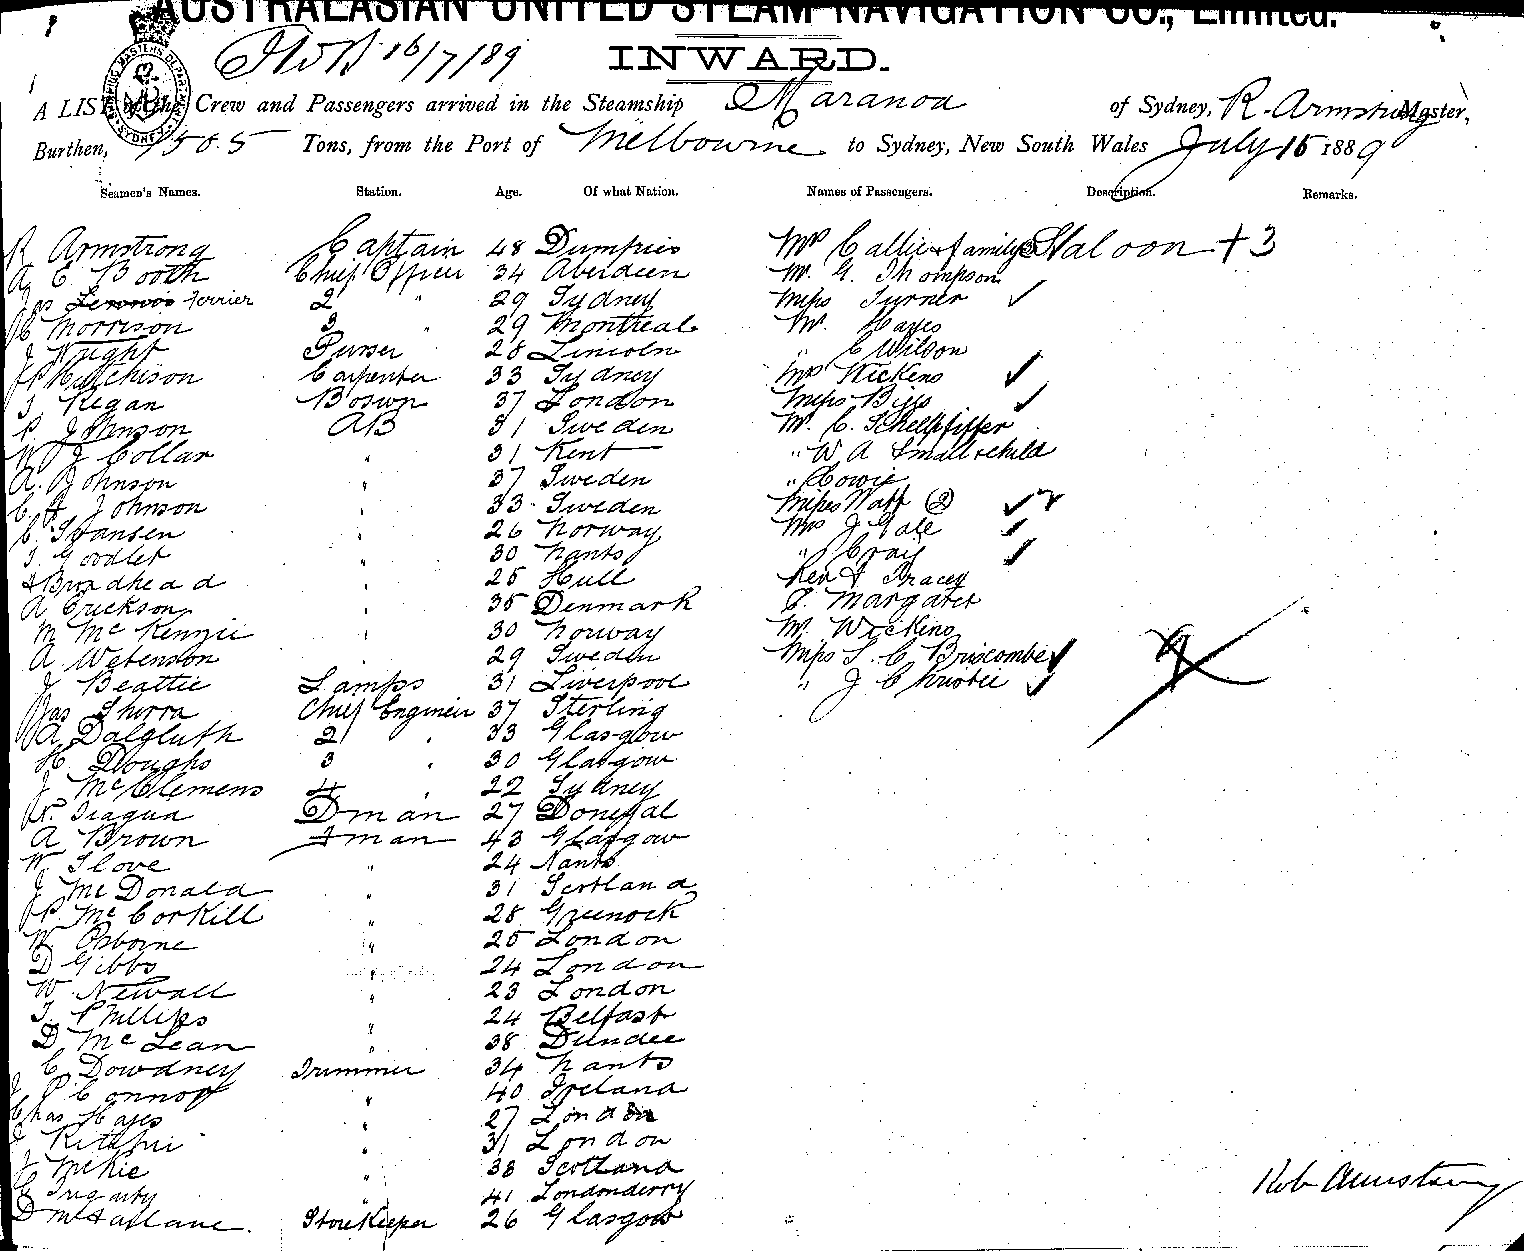 AUSTRALASIAN UNITED STEAM NAVIGATION CO., Limited.
16/7/89 INWARD.
A LIST of the Crew and Passengers arrived in the Steamship Maranoa of Sydney, R. Armstrong Master,
Burthen, 1505 Tons, from the Port of Melbourne to Sydney, New South Wales July 15 1889
Seamen's Names. Station. Age. Of what Nation. Names of Passengers. Description. Remarks.
R Armstrong Captain 48 Dumfries Mrs Callie & family Saloon + 3
A E Booth Chief Officer 34 Aberdeen Mr. G. Thompson
Jas Lennox Ferrier 2 " 29 Sydney Miss Turner ✓
Morrison 3 " 29 Montreal Mr. Hayes
J Wright Purser 28 Lincoln " C Wilson
J P Hutchison Carpenter 33 Sydney Mrs Wickens ✓
T Regan Boswn 37 London Miss Biggs ✓
P. Johnson AB 31 Sweden Mr. C. Schelpfiffer
W J Collar " 31 Kent " W A Small & child
A. Johnson " 37 Sweden " Cowie
C A Johnson " 33 Sweden Misses Watt (2) ✓✓
C. Svansen " 26 Norway Mrs J Gale ✓
T Goodlet " 30 Hants " Cray ✓
Broadhead " 25 Hull Rev F Tracey
A Erickson " 35 Denmark P. Margaret
M McKenzie " 30 Norway Mr. Wickens
A Wetenson " 29 Sweden Miss S. C. Briscombe ✓ 9
J Beattie Lamps 31 Liverpool " J Christie ✓
Jas Shirra Chief Engineer 37 Sterling
A Dalgluth 2 " 33 Glasgow
H Doughs 3 " 30 Glasgow
J McClemens 4 " 22 Sydney
Tragua Dman 27 Donegal
A Brown Fman 43 Glasgow
W Slove " 24 Hants
J McDonald " 31 Scotland
P. McCorkill " 28 Greenock
W Osborne " 25 London
D Gibbs " 24 London
W Newall " 23 London
T. Phillips " 24 Belfast
D McLean " 38 Dundee
C Dowdney Trimmer 34 Hants
J P Connor " 40 Ireland
Chas Hayes " 27 London
J Ritchie " 31 London
J McKie " 38 Scotland
" 41 Londonderry
D McFarlane. Storekeeper 26 Glasgow
Rob Armstrong